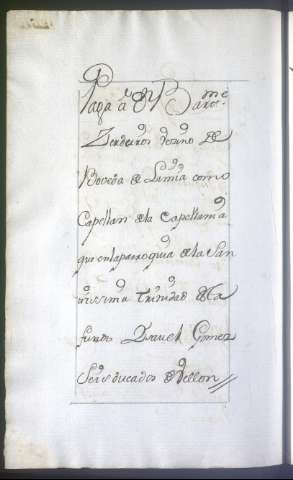 Paga a Dn Barme
Zerdeiros Vezino de
Boveda de Limia como
Capellan de la Capellania
que en la parroquia de la San
tissima Trinidad de
fundo Gomez
Seis ducados de Vellon